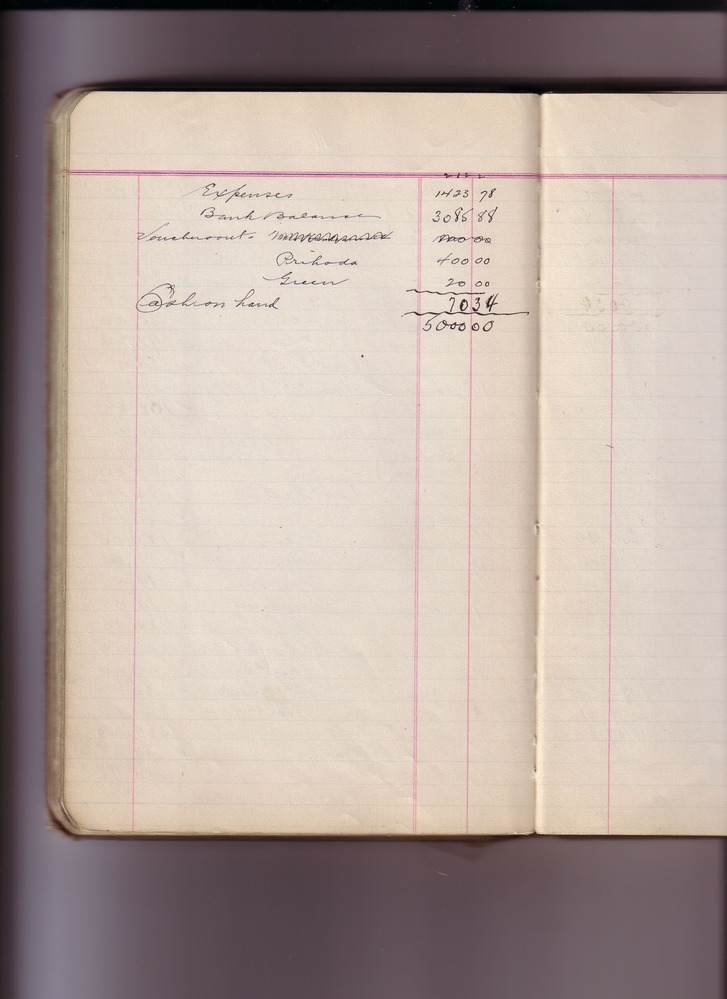 Expenses 1423 78
Bank Balance 3085 88
Vouchers out
Prihoda 400 00
Green 20 00
Cash on hand 70 34
5000 00